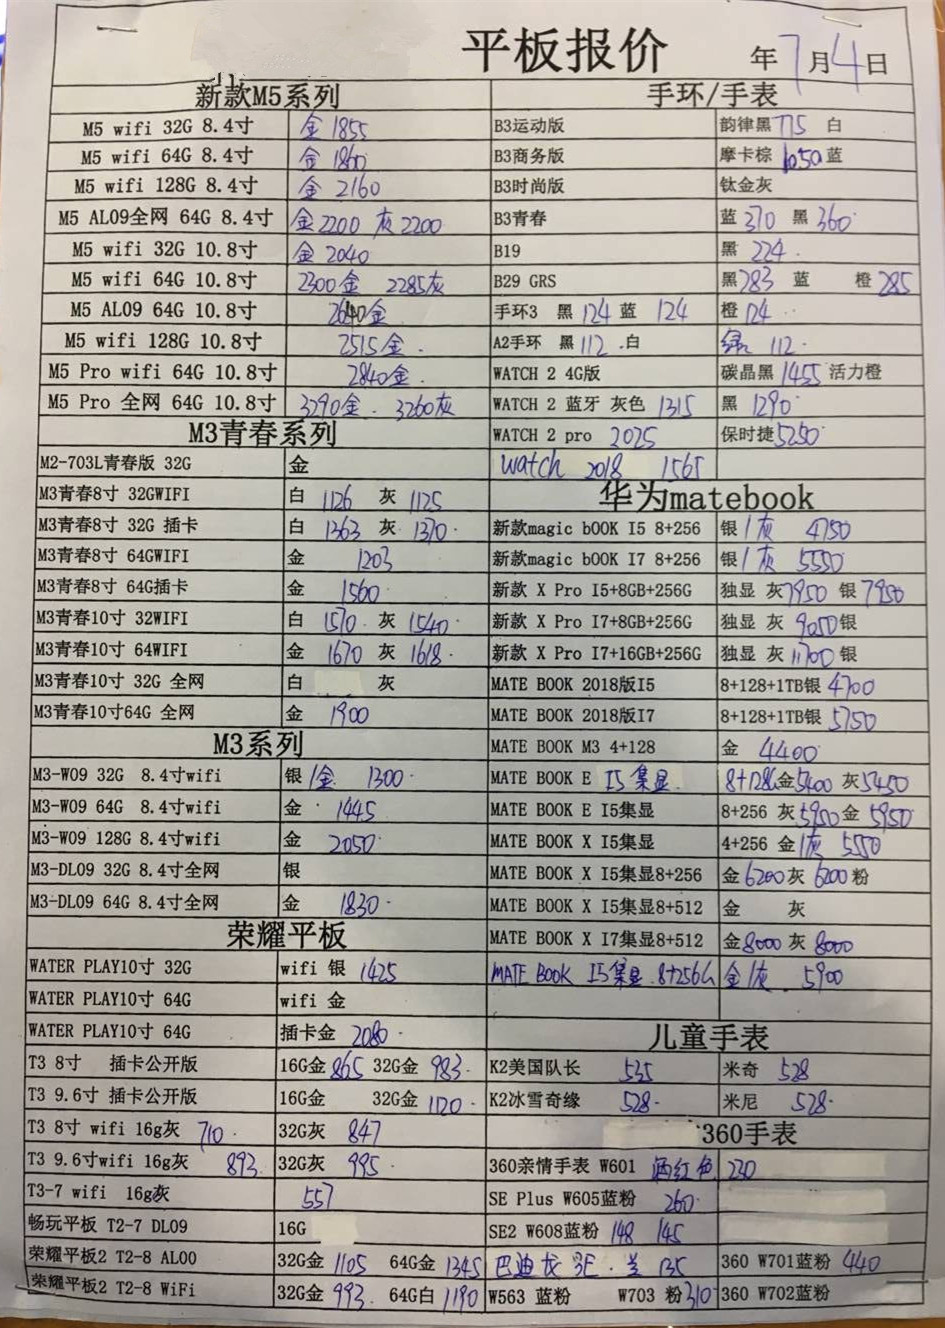 平板报价
年7月4日
新款M5系列
M5 wifi 32G 8.4寸 金 1855
M5 wifi 64G 8.4寸 金 1860
M5 wifi 128G 8.4寸 金 2160
M5 AL09全网 64G 8.4寸 金2200 灰 2200
M5 wifi 32G 10.8寸 金 2040
M5 wifi 64G 10.8寸 2300金 2285灰
M5 AL09 64G 10.8寸 2640金
M5 wifi 128G 10.8寸 2515金.
M5 Pro wifi 64G 10.8寸 2840金.
M5 Pro 全网 64G 10.8寸 3290金. 3260灰
M3青春系列
M2-703L青春版 32G 金
M3青春8寸 32GWIFI 白 1126 灰 1125
M3青春8寸 32G 插卡 白 1363 灰 1370.
M3青春8寸 64GWIFI 金 1203
M3青春8寸 64G插卡 金 1560
M3青春10寸 32WIFI 白 1570. 灰 1540.
M3青春10寸 64WIFI 金 1670 灰 1618.
M3青春10寸 32G 全网 白 灰
M3青春10寸64G 全网 金 1900
M3系列
M3-W09 32G 8.4寸wifi 银/金 1300.
M3-W09 64G 8.4寸wifi 金 1445
M3-W09 128G 8.4寸wifi 金 2050
M3-DL09 32G 8.4寸全网 银
M3-DL09 64G 8.4寸全网 金 1830.
荣耀平板
WATER PLAY10寸 32G wifi 银 1425
WATER PLAY10寸 64G wifi 金
WATER PLAY10寸 64G 插卡金 2080.
T3 8寸 插卡公开版 16G金 865 32G金 983.
T3 9.6寸 插卡公开版 16G金 32G金 1120.
T3 8寸 wifi 16g灰 710. 32G灰 847
T3 9.6寸wifi 16g灰 893. 32G灰 995.
T3-7 wifi 16g灰 557
畅玩平板 T2-7 DL09 16G
荣耀平板2 T2-8 AL00 32G金 1105 64G金 1345
荣耀平板2 T2-8 WiFi 32G金 993. 64G白 1190
手环/手表
B3运动版 韵律黑775 白
B3商务版 摩卡棕 1050蓝
B3时尚版 钛金灰
B3青春 蓝 370 黑 360.
B19 黑 224.
B29 GRS 黑283 蓝 橙 285
手环3 黑 124 蓝 124 橙 124
A2手环 黑 112 .白 绿 112.
WATCH 2 4G版 碳晶黑 1455 活力橙
WATCH 2 蓝牙 灰色 1315 黑 1290.
WATCH 2 pro 2025 保时捷5250
watch 2018 1565
华为matebook
新款magic bOOK I5 8+256 银/灰 4750
新款magic bOOK I7 8+256 银/灰 5550
新款 X Pro I5+8GB+256G 独显 灰7950 银 7950
新款 X Pro I7+8GB+256G 独显 灰 9050银
新款 X Pro I7+16GB+256G 独显 灰 11700 银
MATE BOOK 2018版I5 8+128+1TB银 4700
MATE BOOK 2018版I7 8+128+1TB银 5750
MATE BOOK M3 4+128 金 4400
MATE BOOK E I5集显. 8+128G金5400 灰5450
MATE BOOK E I5集显 8+256 灰5950金 5950
MATE BOOK X I5集显 4+256 金/灰 5550
MATE BOOK X I5集显8+256 金6200灰 6200粉
MATE BOOK X I5集显8+512 金 灰
MATE BOOK X I7集显8+512 金8000 灰 8000
MATE BOOK I5集显.8+256G 金/灰. 5900
儿童手表
K2美国队长 535 米奇 528
K2冰雪奇缘 528. 米尼 528.
360手表
360亲情手表 W601 酒红色 230
SE Plus W605蓝粉 260.
SE2 W608蓝粉 148 145
巴迪龙 3E. 兰 135 360 W701蓝粉 440
W563 蓝粉 W703 粉310 360 W702蓝粉